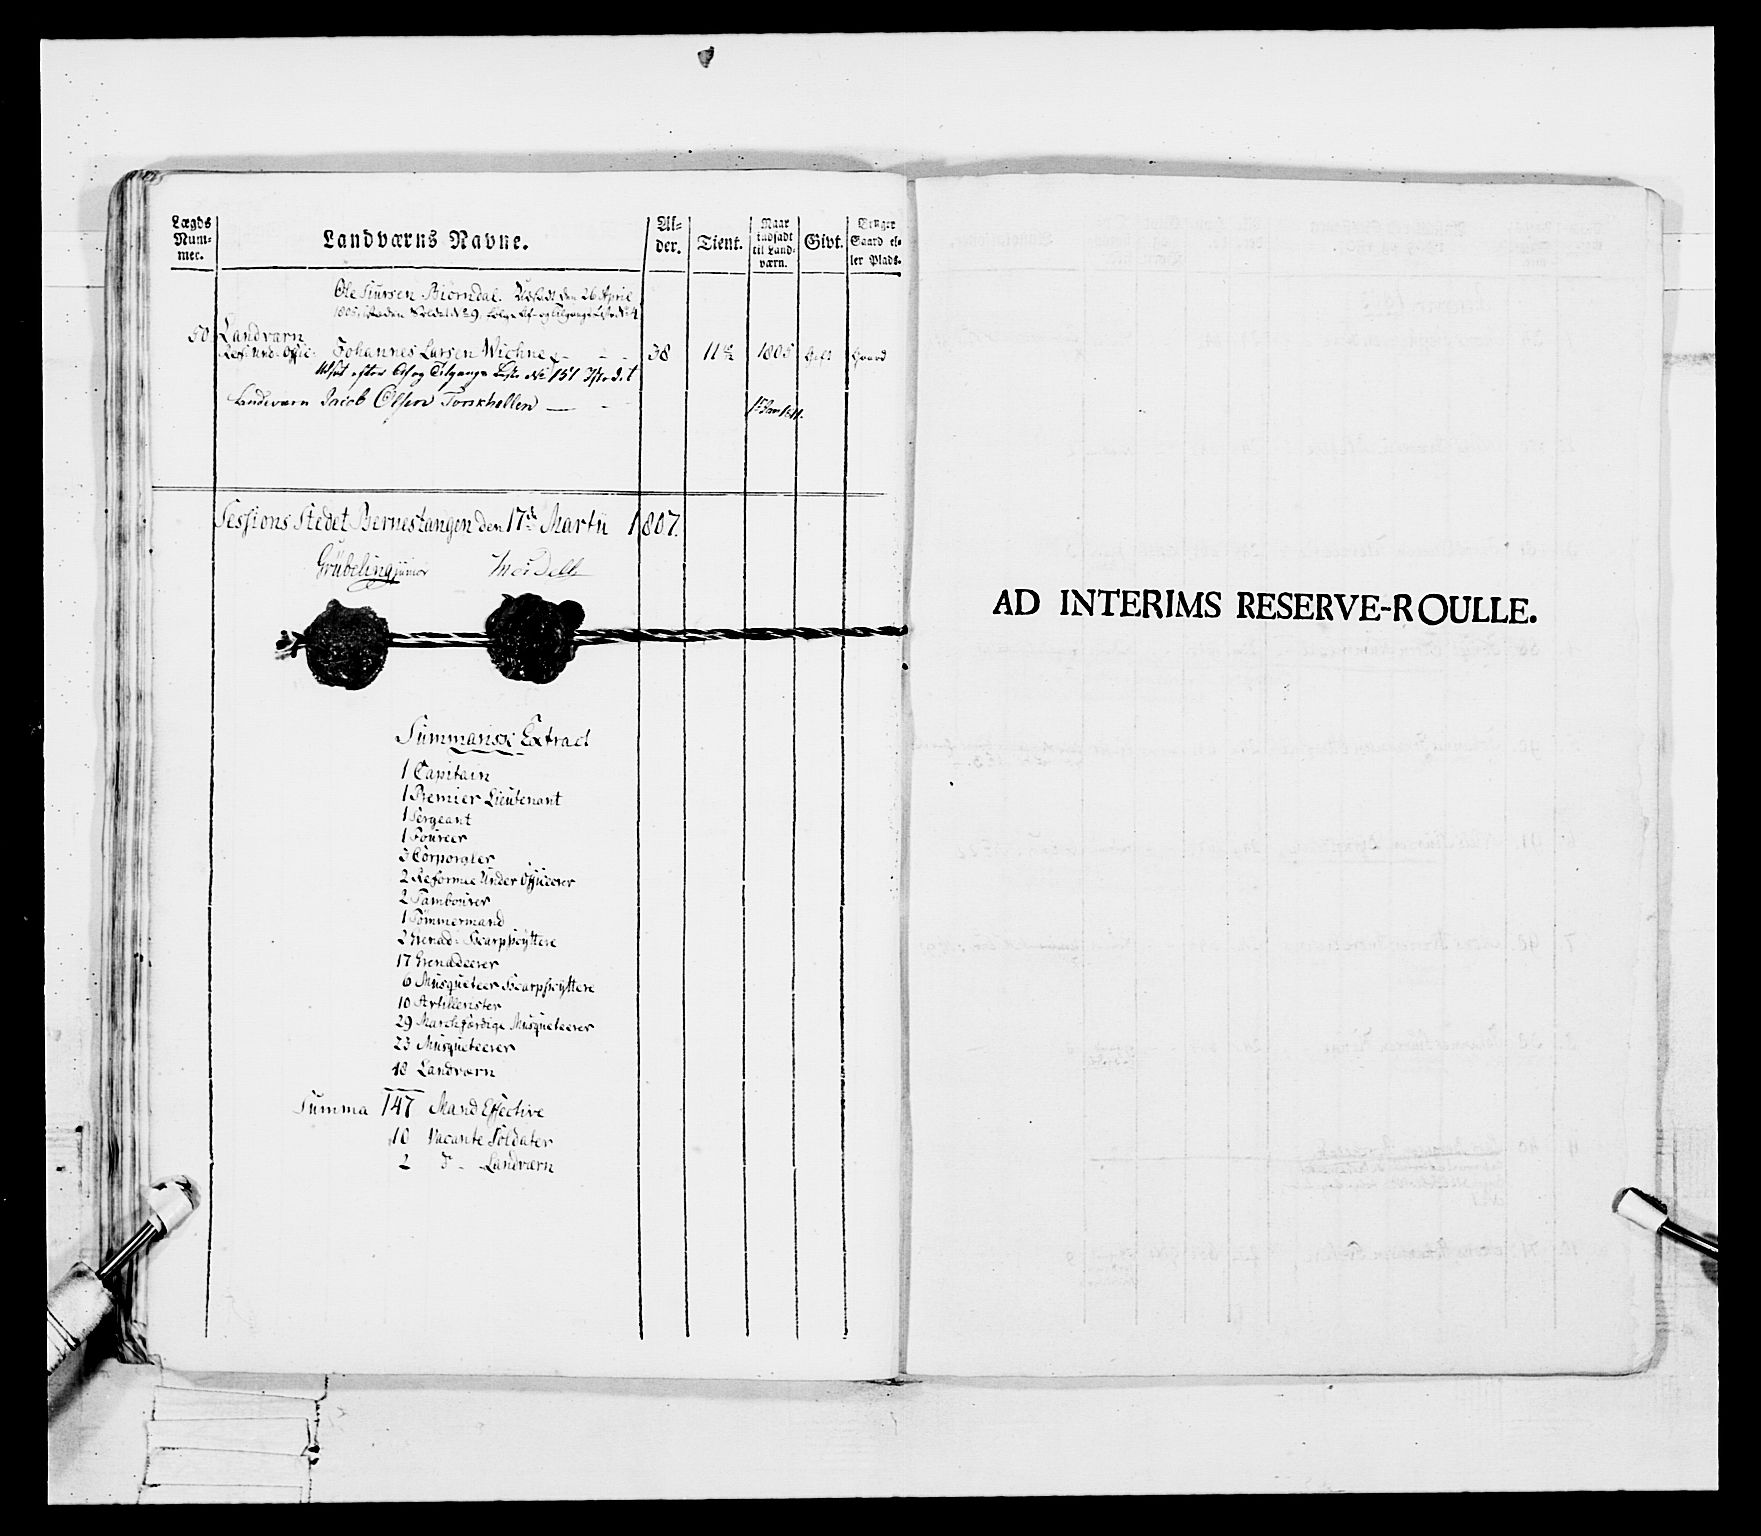 Lægds Num- mer.
Landværns Navne.
Al- der.
Tient.
Naar indsadt til Land- værn.
Givt.
Bruger Gaard el- ler Plads.
Ole Siursen Biörndal. Udsadt den 26 April
50 Landværn
Ref: Und: Offic: Johannes Larsen Wichne 38 11 1805 Gift Gaard
Udsat efter Af og Tilgangs Liste No 151
Landværn Jacob Olsen Torskhellen
Sessions Stedet Bernestangen den 17de Martii 1807.
Grübeling junior
Summarisk Extract
1 Capitain
1 Premier Lieutenant
1 Sergeant
1 Foureer
3 Corporaler
2 Reforme Under Officerer
2 Tambourer
1 Tömmermand
2 Grenad: Skarpskyttere
17 Grenadeerer
6 Musqueteer Skarpskyttere
10 Artillerister
29 Marchfærdige Musqueteerer
23 Musqueteerer
48 Landværn
Summa 147 Mand Effective
10 Vacante Soldater
2 D- Landværn
AD INTERIMS RESERVE-ROULLE.